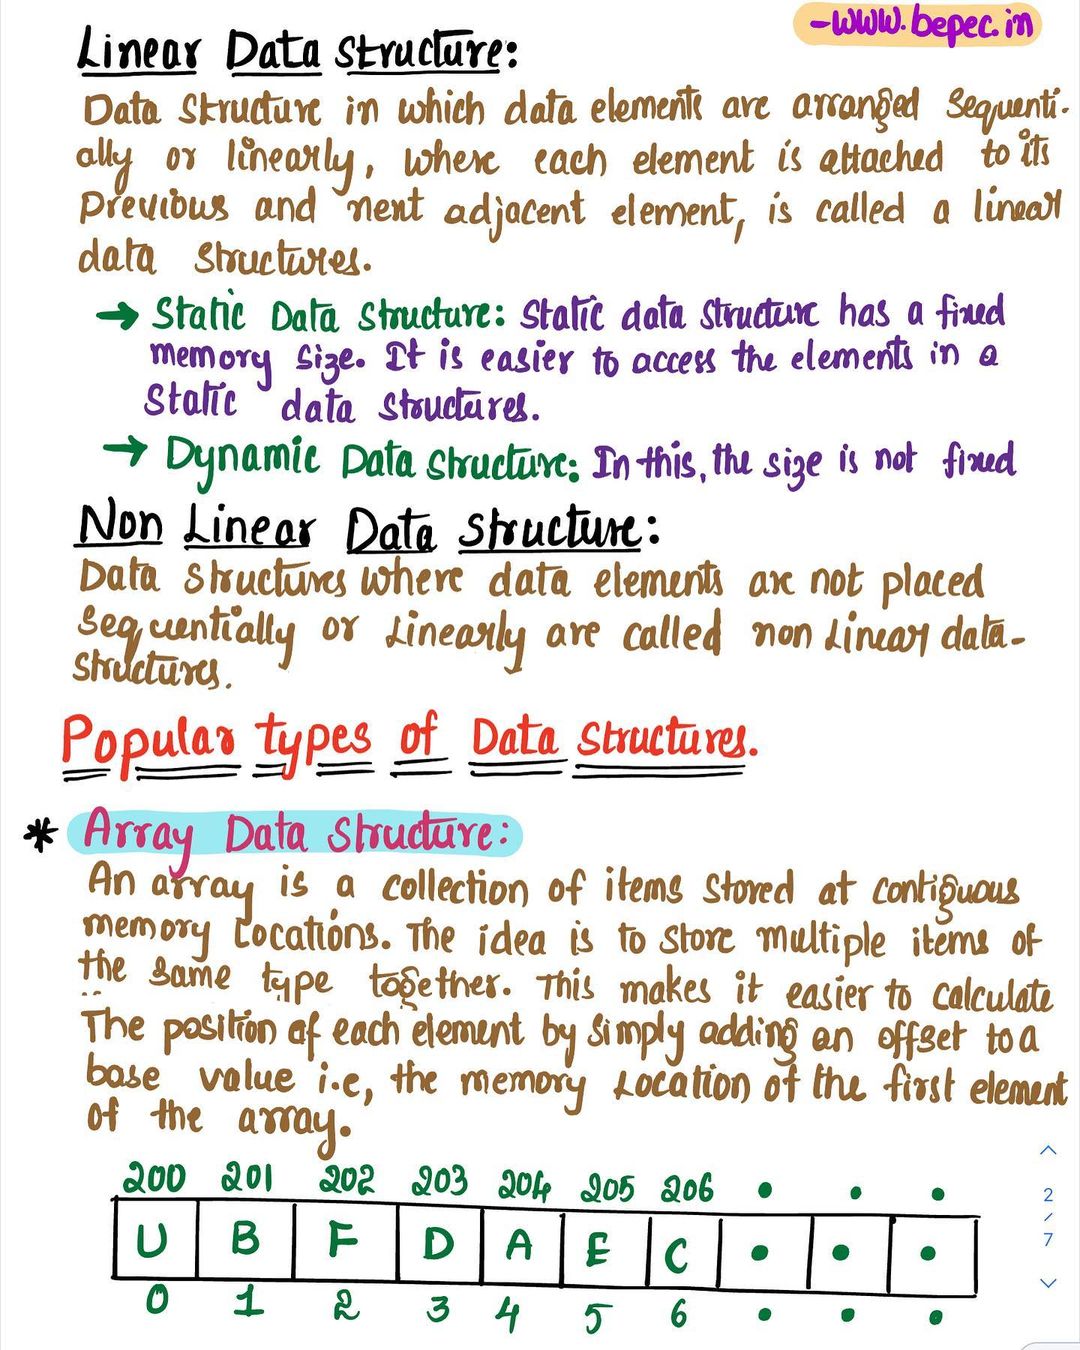 -www.bepec.in
Linear Data Structure:
Data Structure in which data elements are arranged Sequenti-
ally or linearly, where each element is attached to its
Previous and next adjacent element, is called a linear
data structures.
→ Static Data Structure: Static data structure has a fixed
memory Size. It is easier to access the elements in a
Static data structures.
→ Dynamic Data Structure: In this, the size is not fixed
Non Linear Data Structure:
Data Structures where data elements are not placed
Sequentially or Linearly are called non Linear data-
structures.
Popular types of Data Structures.
* Array Data Structure:
An array is a collection of items stored at contiguous
memory Locations. The idea is to store multiple items of
the same type together. This makes it easier to calculate
The position of each element by simply adding an offset to a
base value i.e, the memory Location of the first element
of the array.
200 201 202 203 204 205 206 • • •
U B F D A E C • • •
0 1 2 3 4 5 6 • • •
2
/
7